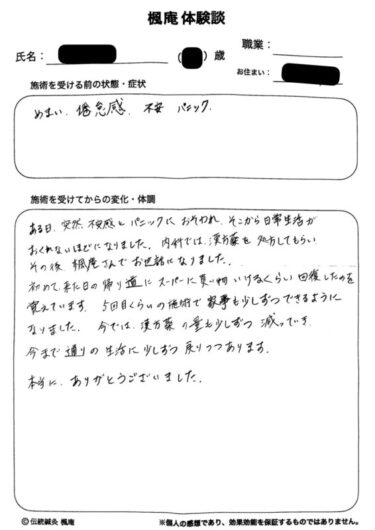 楓庵 体験談
氏名： （ ）歳 職業：
お住まい：
施術を受ける前の状態・症状
めまい、倦怠感、不安 パニック、
施術を受けてからの変化・体調
ある日、突然、不安感とパニックにおそわれ、そこから日常生活が
おくれないほどになりました。内科では、漢方薬を処方してもらい
その後 楓庵さんでお世話になりました。
初めて来た日の帰り道にスーパーに買い物いけるくらい回復したのを
覚えています。5回目くらいの施術で家事も少しずつできるように
なりました。今では、漢方薬の量も少しずつ減っていき
今まで通りの生活に少しずつ戻りつつあります。
本当に、ありがとうございました。
© 伝統鍼灸 楓庵 ※個人の感想であり、効果効能を保証するものではありません。